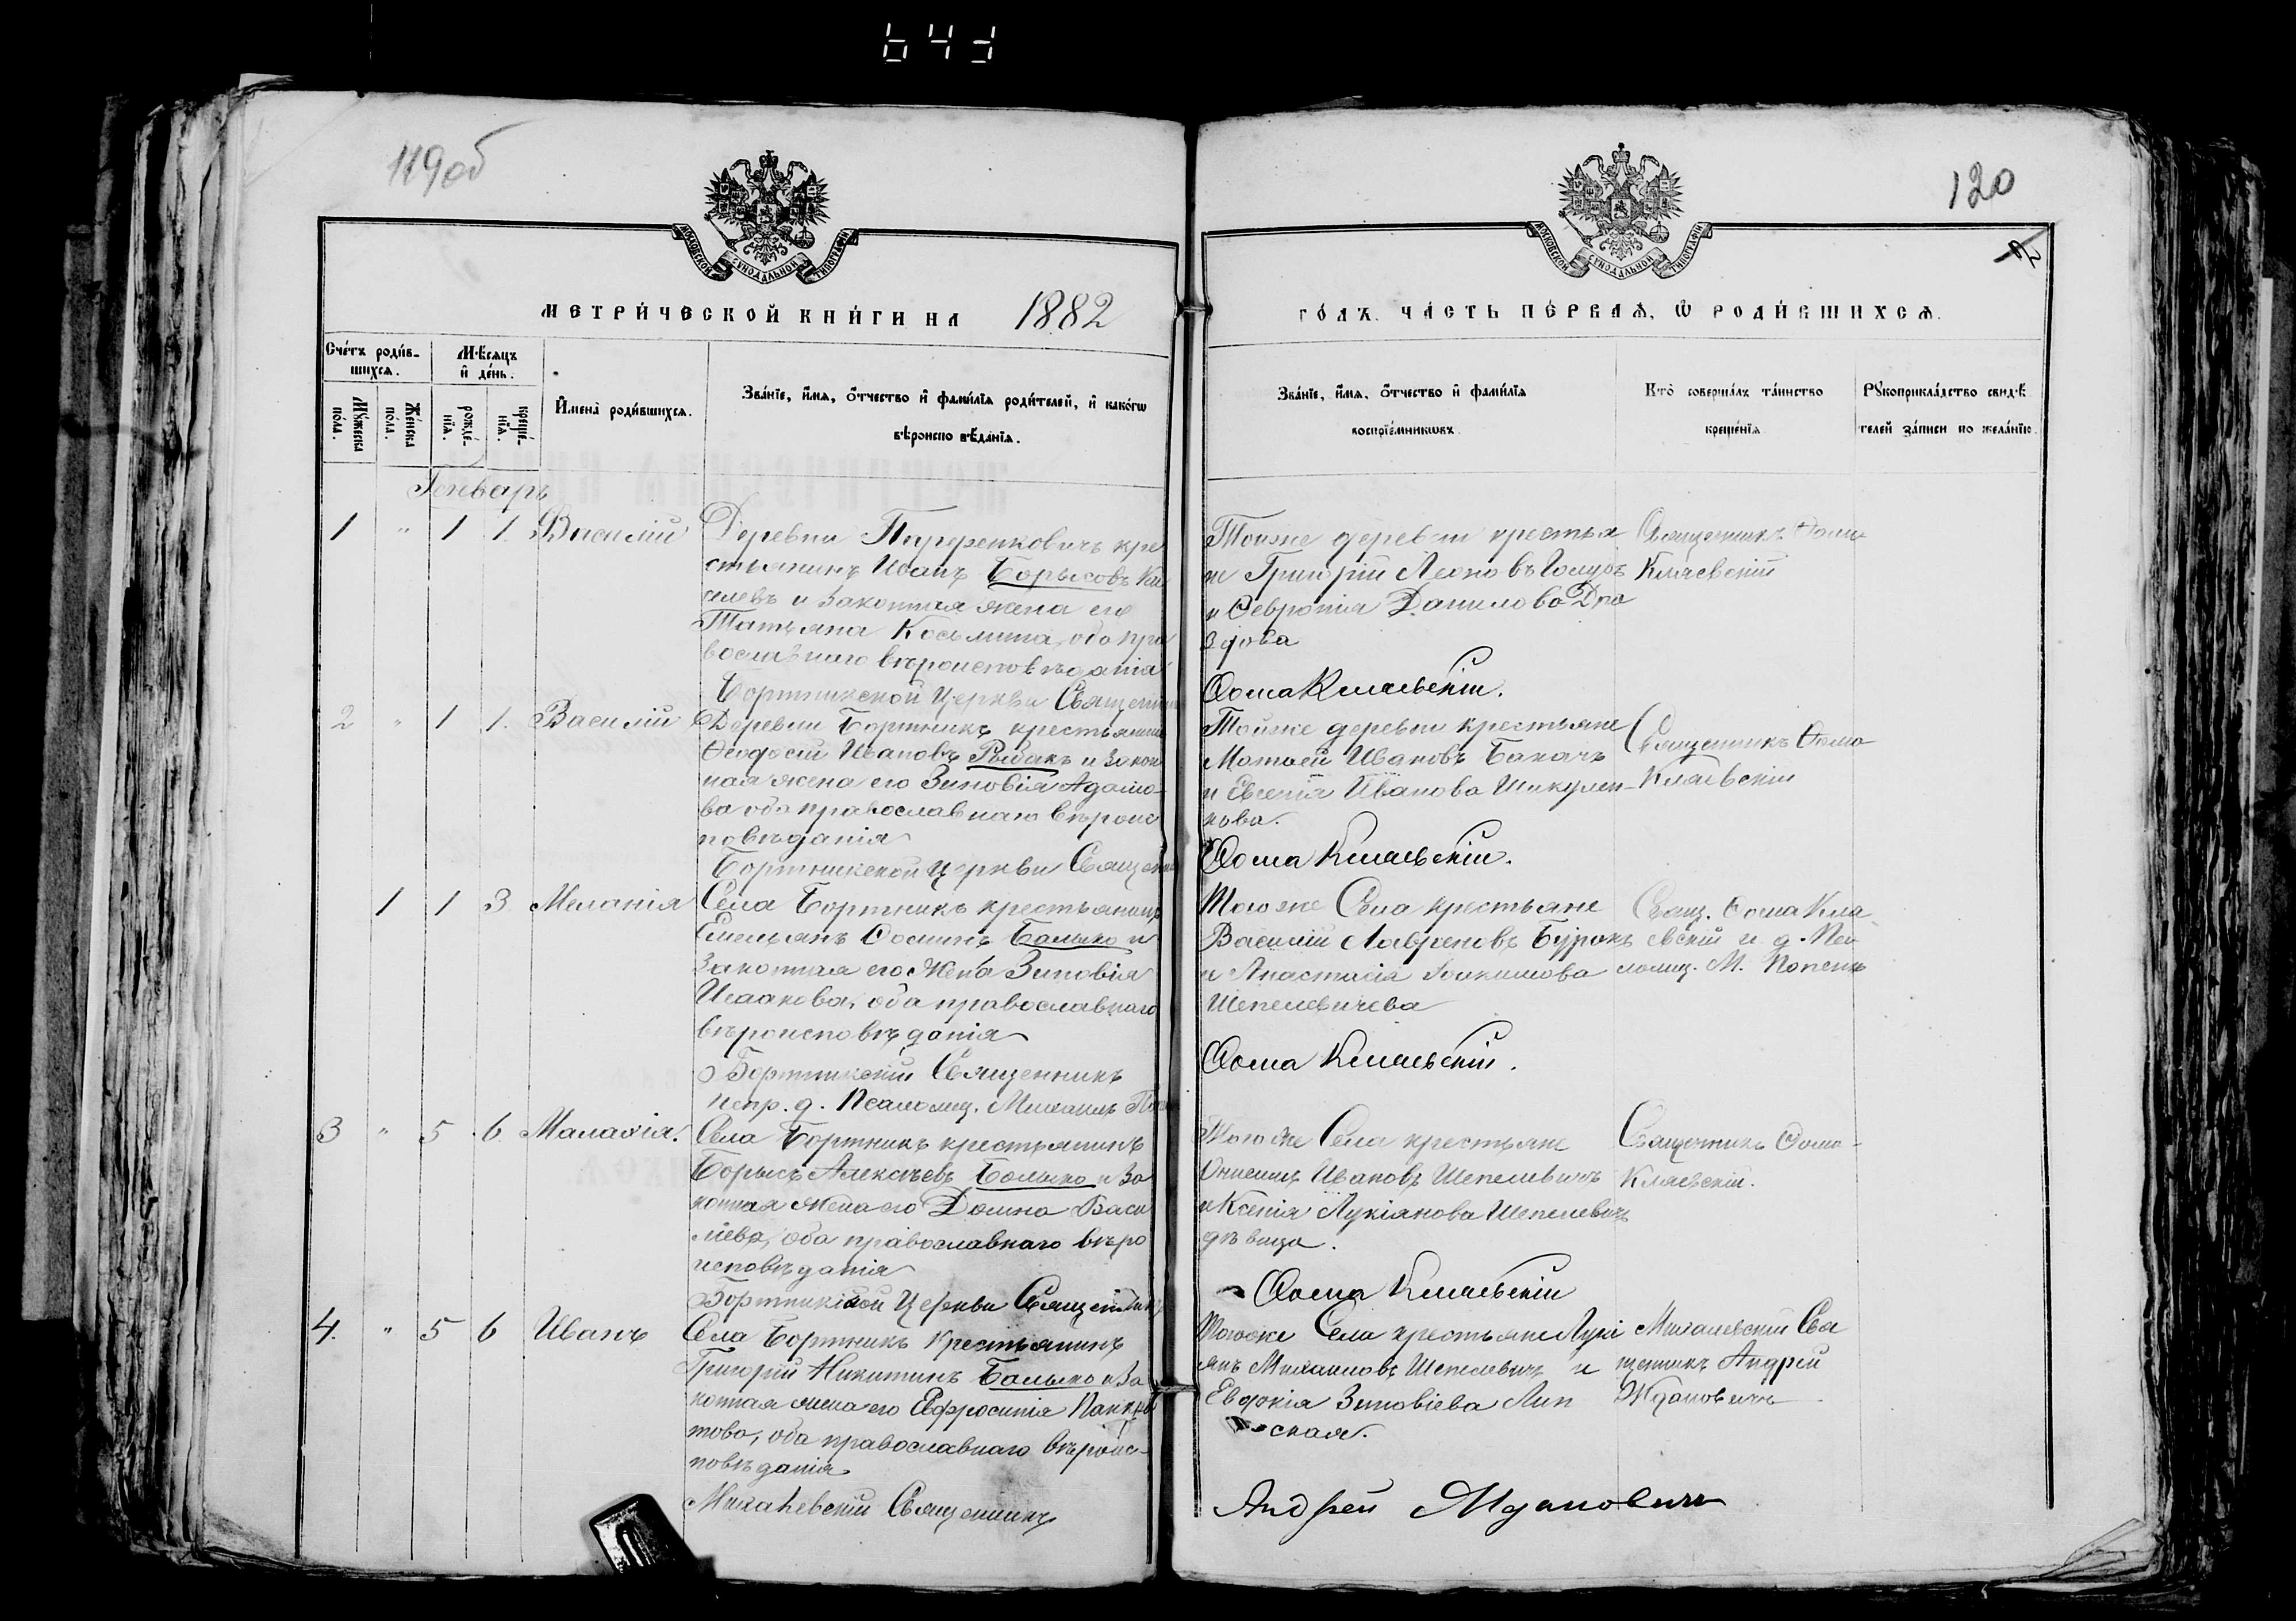 119об
120
МОСКОВСКОЙ СѴНОДАЛЬНОЙ ТИПОГРАФІИ
МОСКОВСКОЙ СѴНОДАЛЬНОЙ ТИПОГРАФІИ
МЕТРИ́ЧЕСКОЙ КНИ́ГИ НА 1882
ГО́ДЪ. ЧА́СТЬ ПЕ́РВАѦ, Ѡ РОДИ́ВШИХСѦ.
Сче́тъ роди́в-
шихся.
Мѣ́сяцъ
и де́нь.
Му́жеска
по́ла.
Же́нска
по́ла.
рожде́-
нія.
креще́-
нія.
Имена̀ роди́вшихся.
Зва́нїе, и́мя, о́тчество и фами́лїя роди́телей, и како́гѡ
вѣроисповѣ́данїя.
Зва́нїе, и́мя, о́тчество и фами́лїя
воспрїе́мникѡвъ.
Кто̀ соверша́лъ та́инство
креще́нїя
Рукоприкла́дство свидѣ́-
телей за́писи по жела́нїю.
Генварь
1 " 1 1. Василій
Деревни кре
стьянинъ Иванъ Борысовъ Ки
селевъ и законная жена его
Татьяна Косьмина, оба пра
вославнаго вѣроисповѣданія
Бортникской Церкви Священникъ
Тойже деревни крестья
не Григорій Леоновъ Голубъ
и Февронія Данилова Дро
здова
Ѳома Клаевскій.
Священникъ Ѳома
Клаевскій
2 " 1 1. Василій
Деревни Бортникъ крестьянинъ
Ѳеодосій Ивановъ Рыбакъ и закон
ная жена его Зиновія Адамо-
ва оба православнаго вѣроис
повѣданія
Бортникской Церкви Священникъ
Тойже деревни крестьяне
Матѳей Ивановъ Бакачъ
и Евгенія Иванова Шикулен-
кова.
Ѳома Клаевскій.
Священникъ Ѳома
Клаевскій
1 1 3 Меланія
Села Бортникъ крестьянинъ
Емельянъ Ѳоминъ Балыко и
законная его жена Зиновія
Исаакова, оба православнаго
вѣроисповѣданія
Бортникскій Священникъ
испр. д. Псаломщ. Михаилъ
Тогоже Села крестьяне
Василій Лавреновъ Бурокъ
и Анастасія Іоакимова
Шепелевичева
Ѳома Клаевскій.
Свящ. Ѳома Кла
евскій и. д. Пса
ломщ. М. Попенъ
3 " 5 6 Малахія.
Села Бортникъ крестьянинъ
Борысъ Алексѣевъ Балыко и за
конная жена его Домна Васи
лієва, оба православнаго вѣро
исповѣданія
Бортникской Церкви Священникъ
Тогоже Села крестьяне
Онисимъ Ивановъ Шепелевичъ
и Ксенія Лукіанова Шепелевичъ
дѣвица.
Ѳома Клаевскій
Священникъ Ѳома
Клаевскій.
4. " 5 6 Иванъ
Села Бортникъ Крестьянинъ
Григорій Никитинъ Балыко и за
конная жена его Евфросинія Панкра
това, оба православнаго вѣроис-
повѣданія
Михалевскій Священникъ
Тогоже Села крестьяне Лукі
янъ Михаиловъ Шепелевичъ и
Евдокія Зиновіева Лип
ская.
Андрей Ждановичъ
Михалевскій Свя
щенникъ Андрей
Ждановичъ